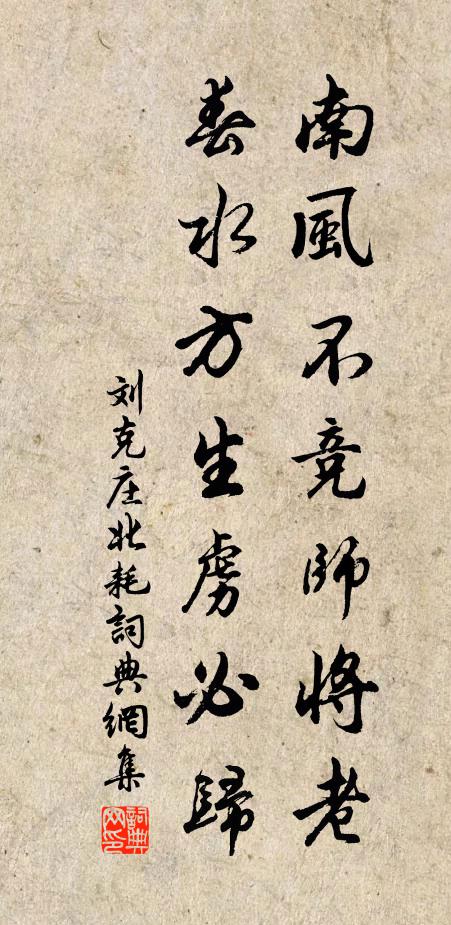 南風不竞師將老
春水方生虜必歸
刘克庄北耗詞典網集
詞典
网印